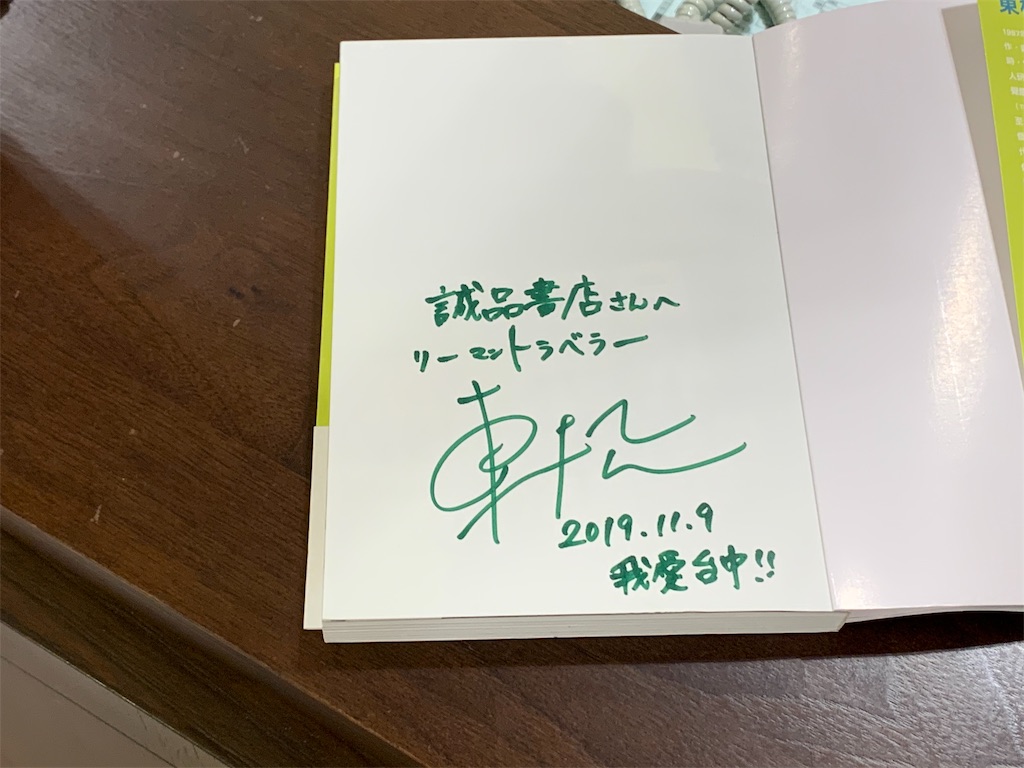 誠品書店さんへ
リーマントラベラー
東松
2019.11.9
我愛台中!!